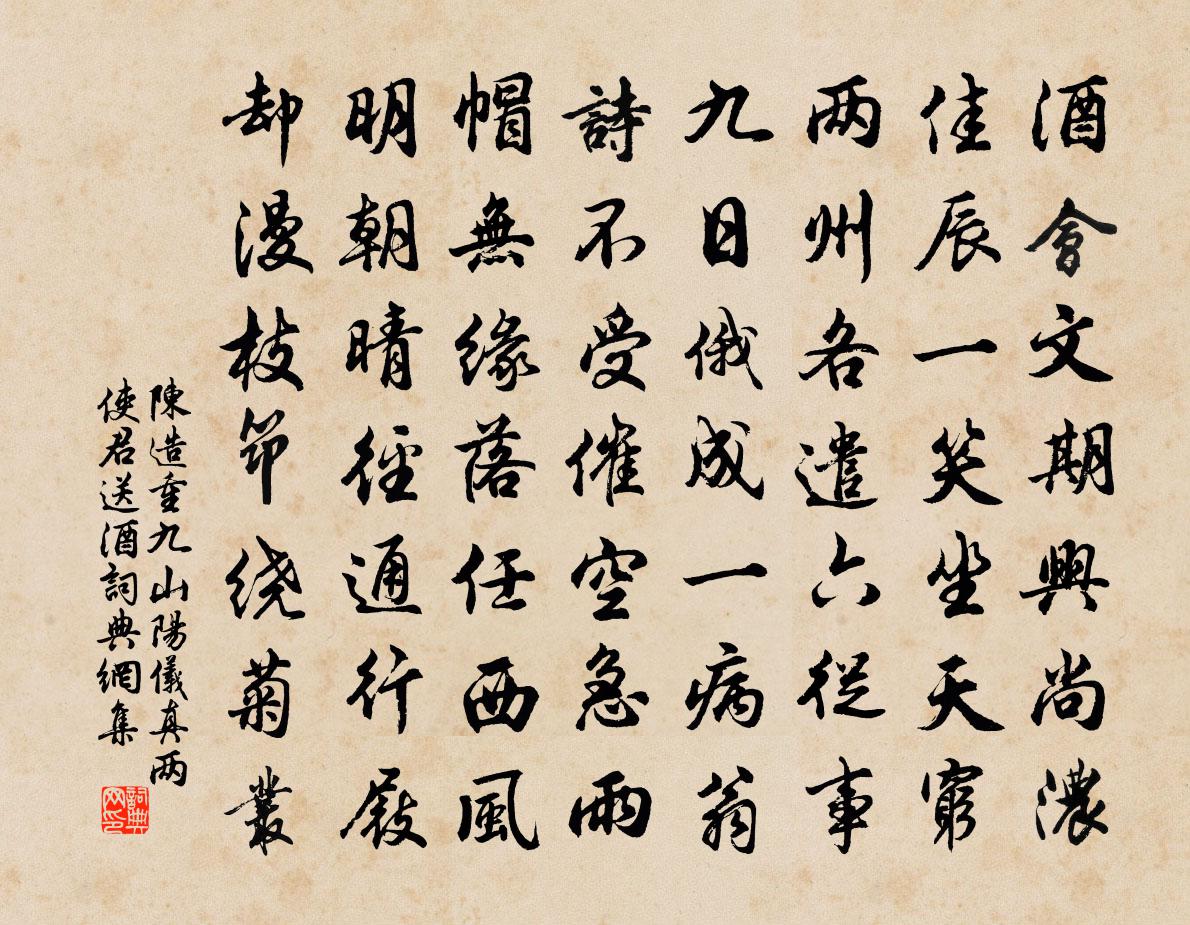 酒會文期興尚濃
佳辰一笑坐天窮
两州各遣六從事
九日俄成一病翁
詩不受催空急雨
帽無緣落任西風
明朝晴徑通行屐
却漫枝笻绕菊叢
陳造重九山陽儀真两
使君送酒詞典網集
詞典网印